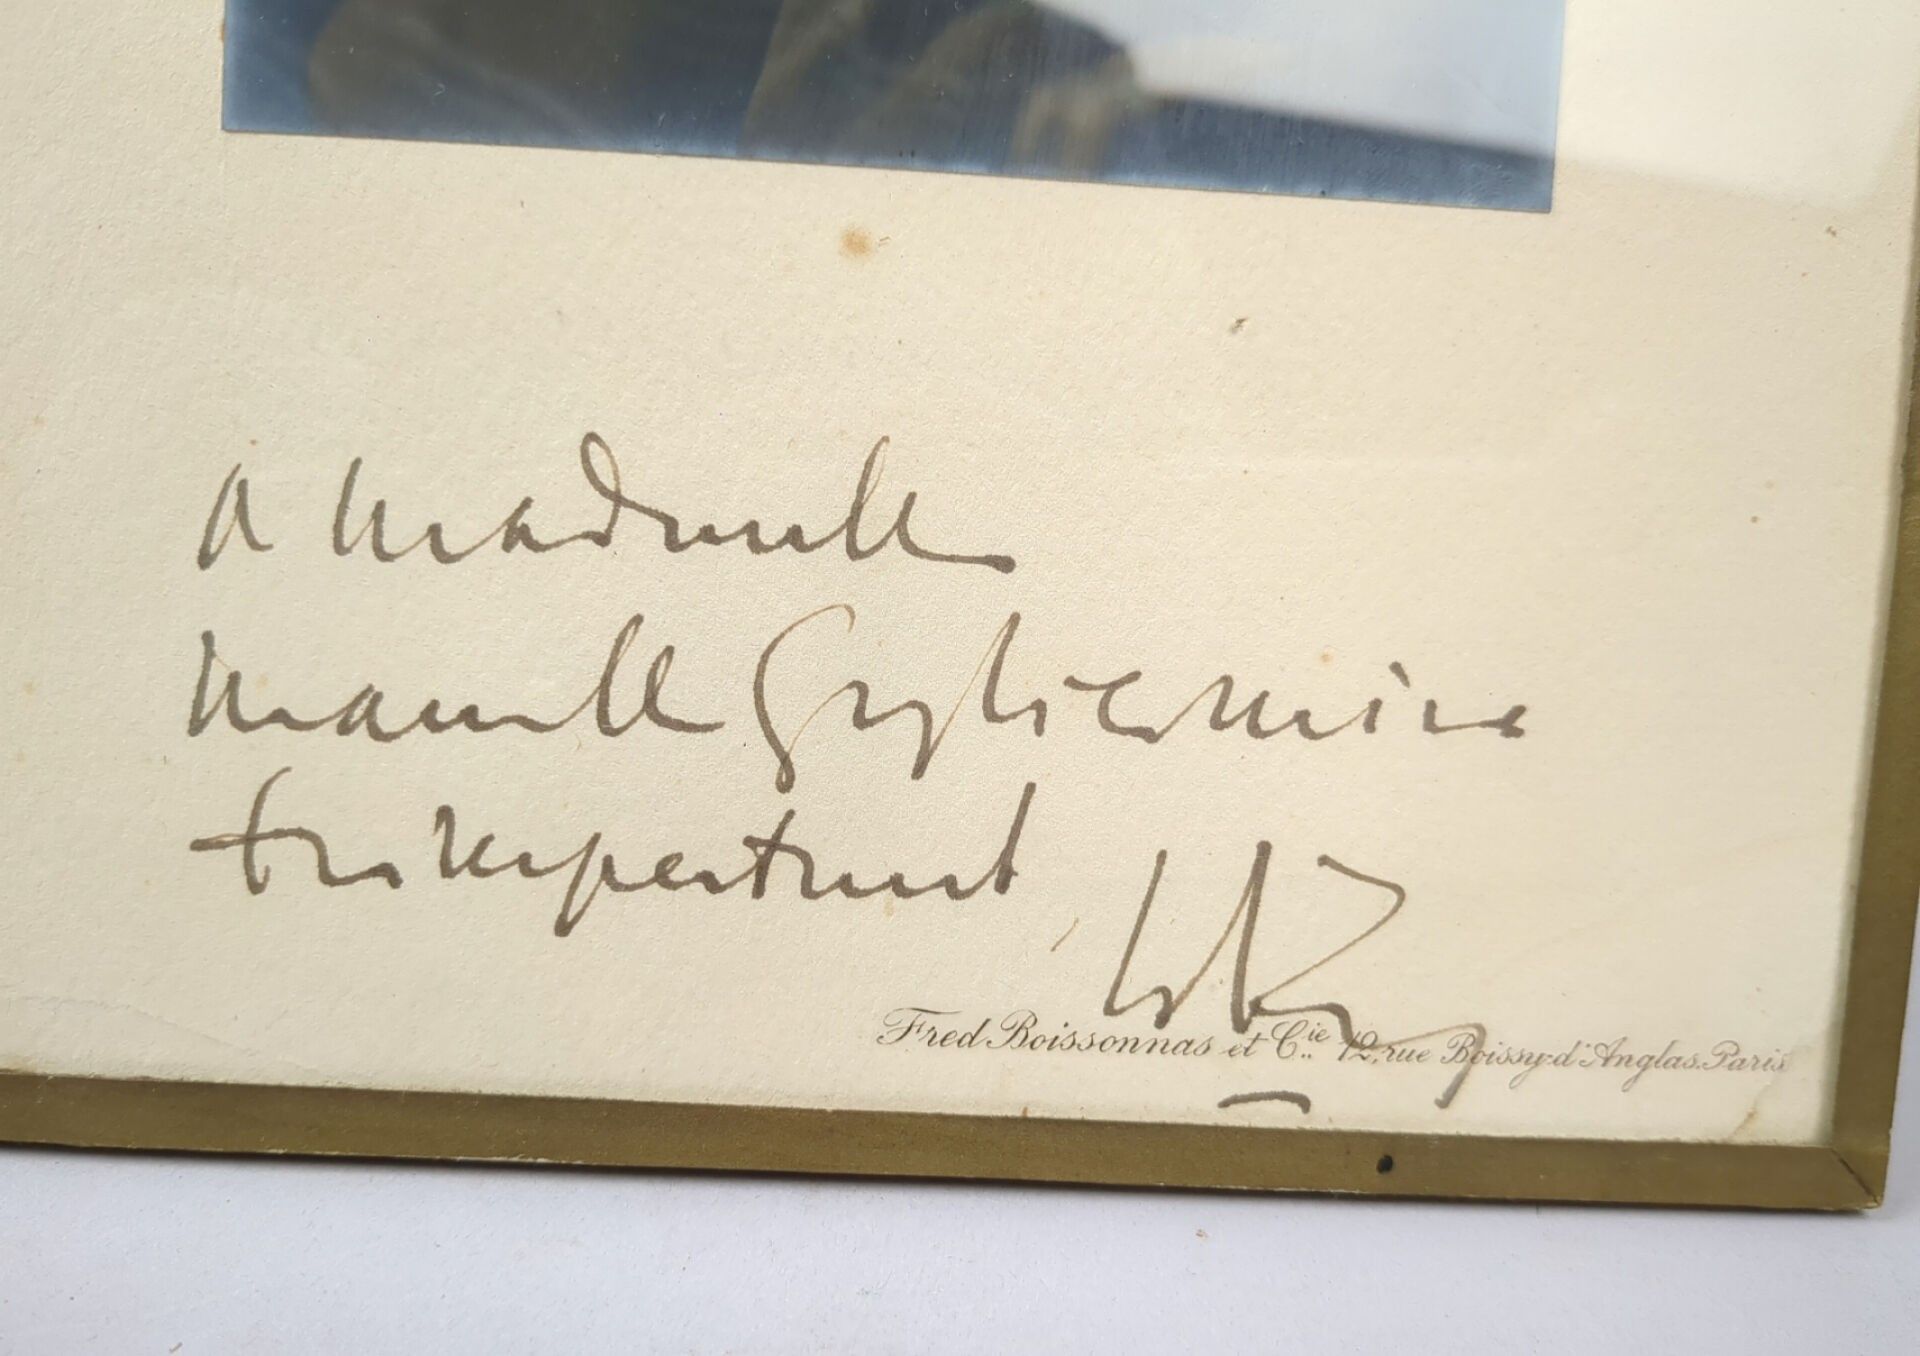 A Mademoiselle
Marcelle
très respectueusement
Fred Boissonnas et Cie. 12, rue Boissy-d'Anglas. Paris